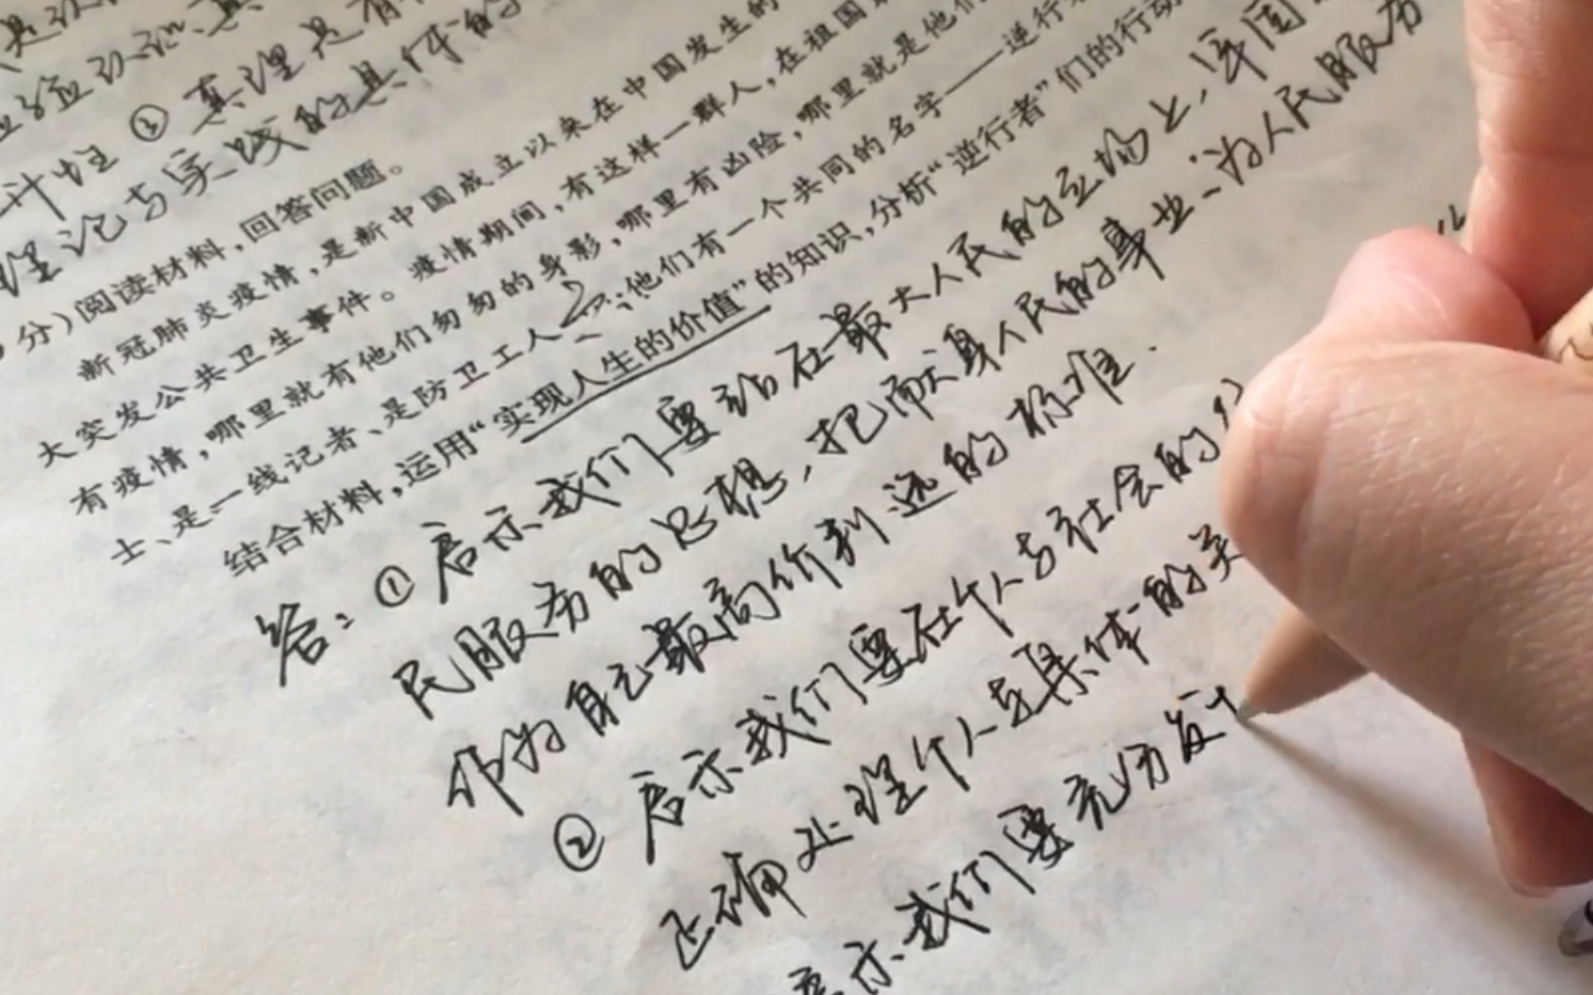 是
真
计性 ③ 真理是有
理论与实践的具体的
分)阅读材料,回答问题。
新冠肺炎疫情,是新中国成立以来在中国发生的
大突发公共卫生事件。疫情期间,有这样一群人,在祖国
有疫情,哪里就有他们匆匆的身影,哪里有凶险,哪里就是他们
士、是一线记者、是防卫工人 他们有一个共同的名字——逆行
结合材料,运用“实现人生的价值”的知识,分析“逆行者”们的行动
答:①启示我们要站在最大人民的立场上,牢固
民服务的思想,把献身人民的事业、为人民服务
作为自己最高价判选的标准.
②启示我们要在个人与社会的
正确处理个人与集体的关
启示我们要充分发